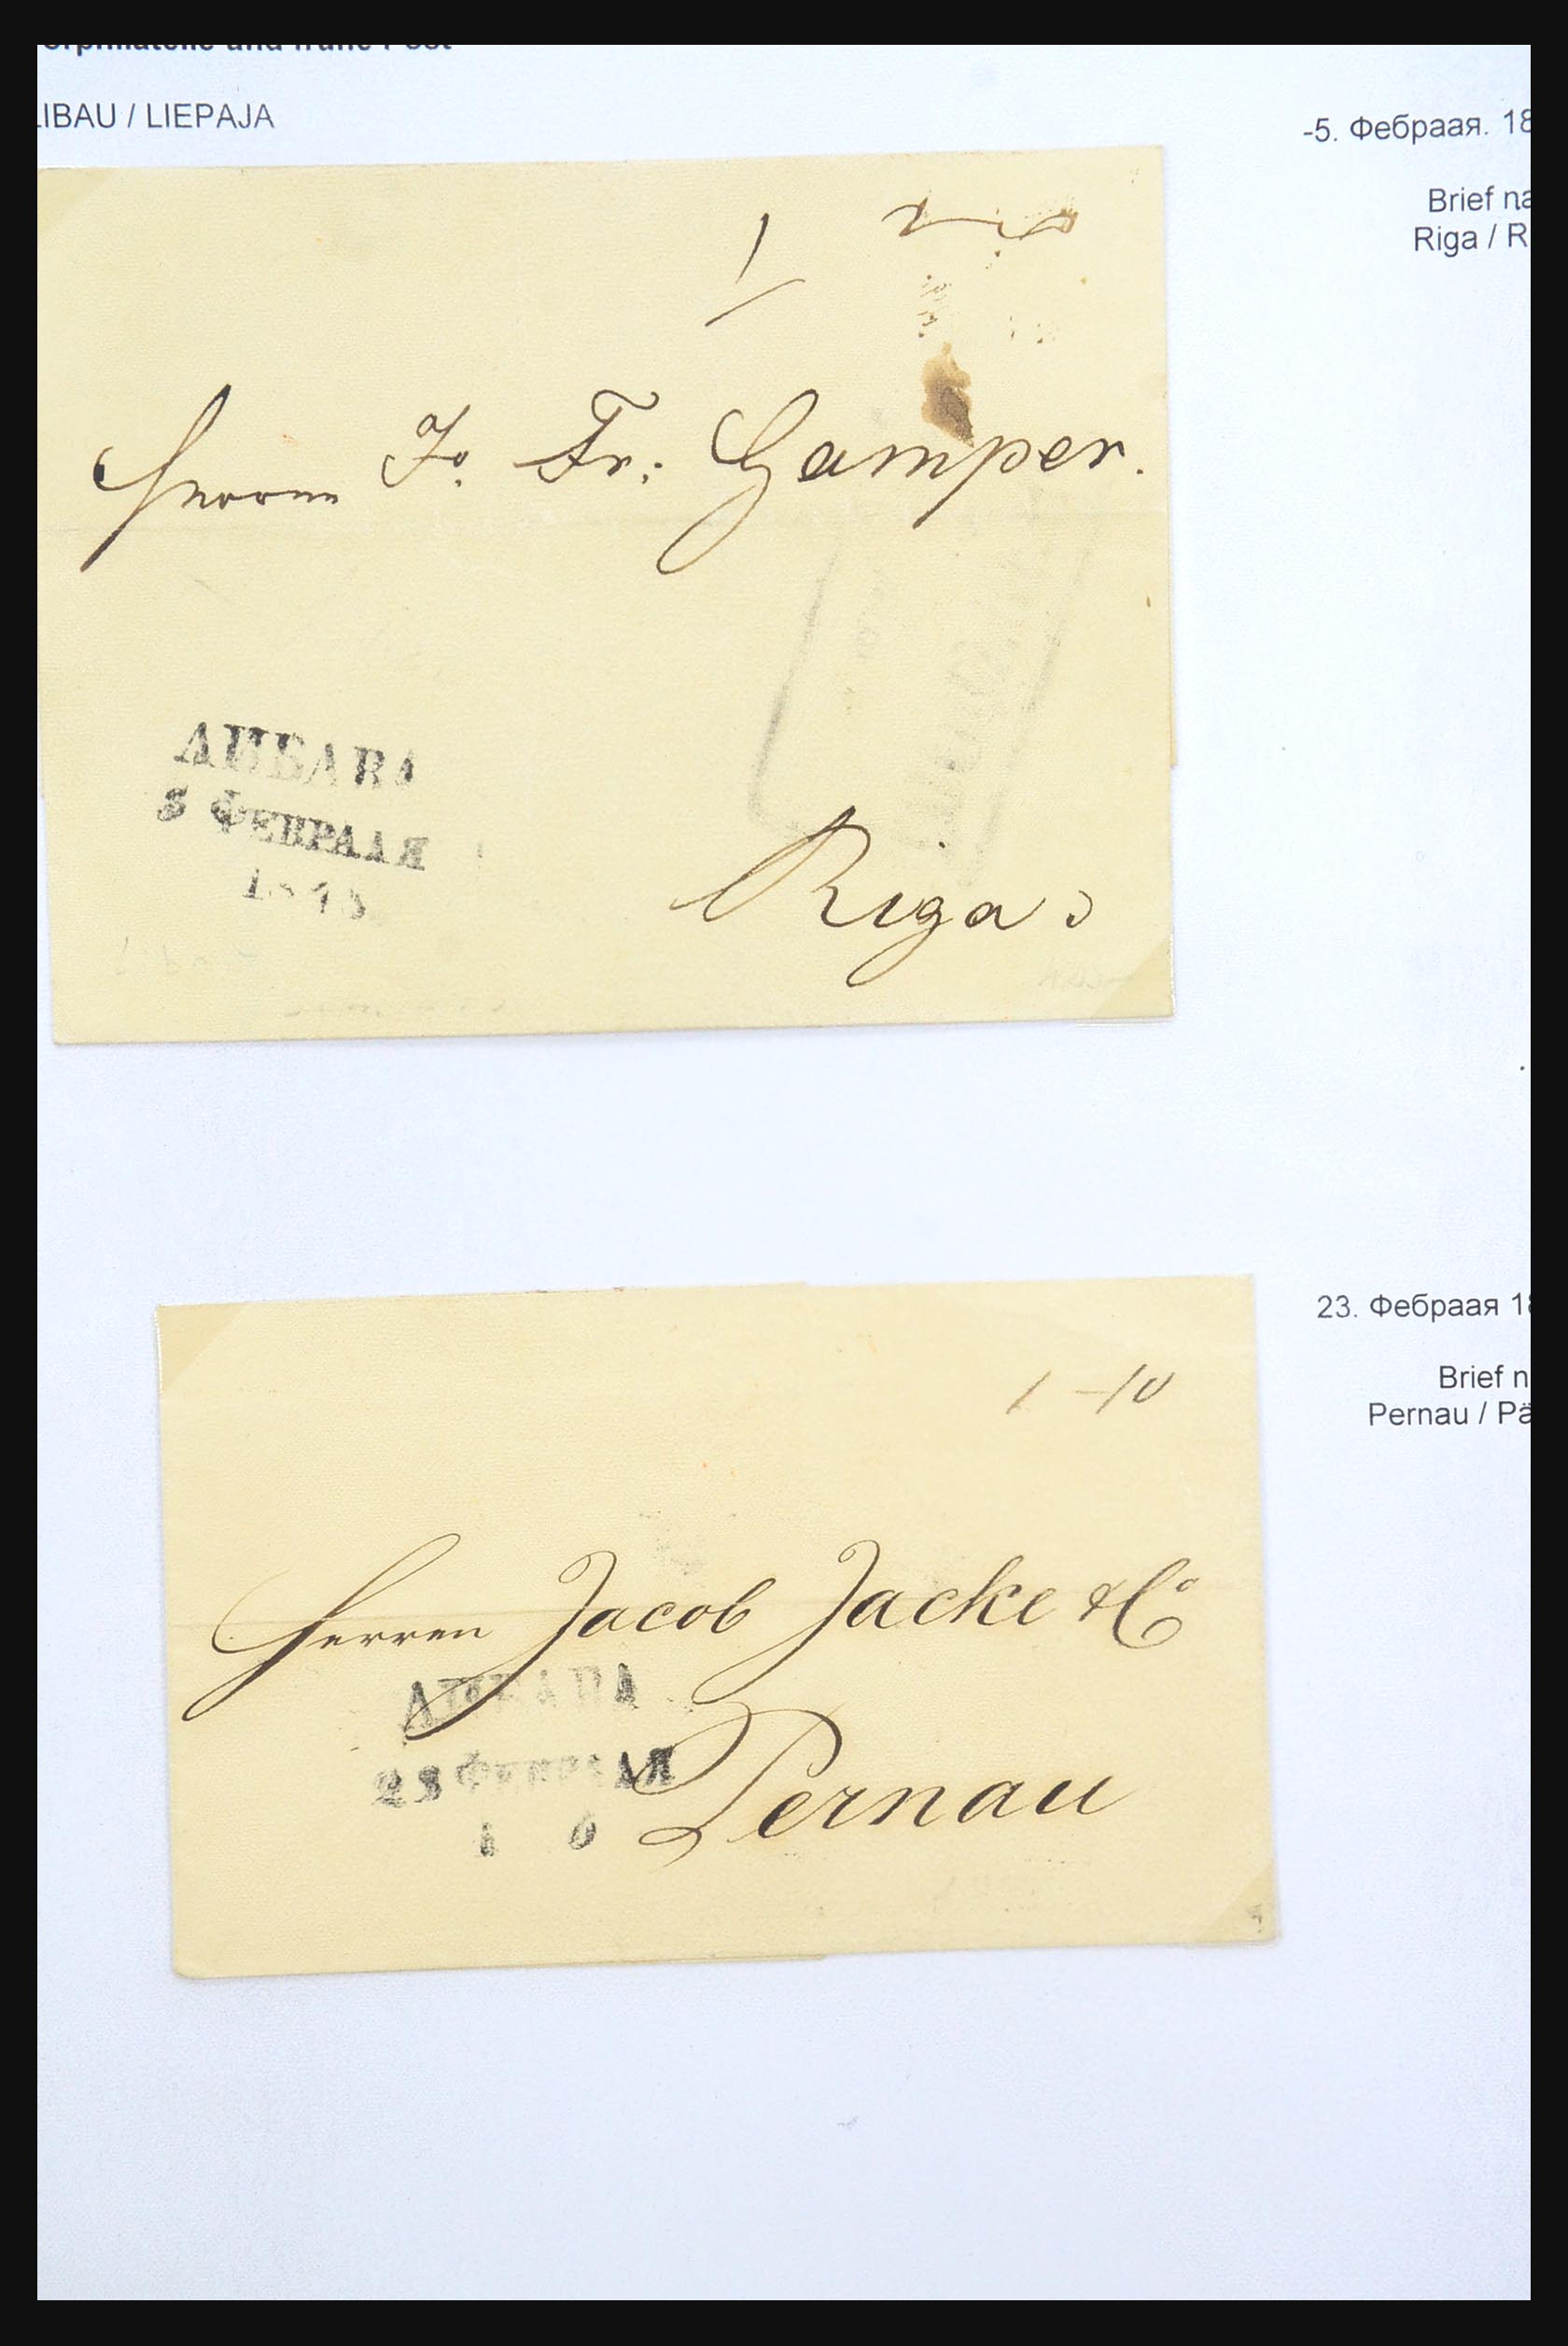 LIBAU / LIEPAJA
-5. Фебраая. 18
Brief na
Riga / R
Herrn Jo. Fr: Gamper.
ЛИБАВА
5 ФЕВРАЛЯ
Riga
23. Фебраая 18
Brief n
Pernau / Pä
1 -10
Herren Jacob Jacke & Co
ЛИБАВА
23 ФЕВРАЛЯ
Pernau